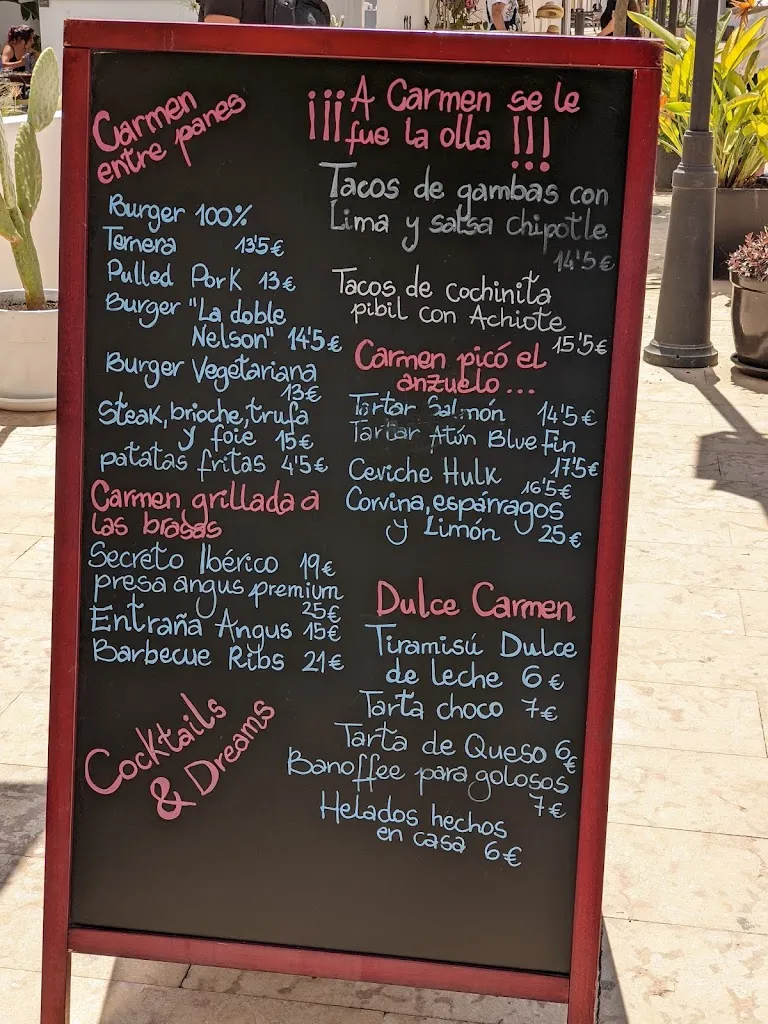 Carmen
entre panes
Burger 100%
Ternera 13'5€
Pulled Pork 13€
Burger "La doble
Nelson" 14'5€
Burger Vegetariana
13€
Steak, brioche, trufa
y foie 15€
patatas fritas 4'5€
Carmen grillada a
las brasas
Secreto Ibérico 19€
presa angus premium
25€
Entraña Angus 15€
Barbecue Ribs 21€
Cocktails
& Dreams
¡¡¡A Carmen se le
fue la olla !!!
Tacos de gambas con
Lima y salsa chipotle
14'5€
Tacos de cochinita
pibil con Achiote
15'5€
Carmen picó el
anzuelo...
Tartar Salmón 14'5€
Tartar Atún Blue Fin
17'5€
Ceviche Hulk 16'5€
Corvina, espárragos
y Limón 25€
Dulce Carmen
Tiramisú Dulce
de leche 6€
Tarta choco 7€
Tarta de Queso 6€
Banoffee para golosos
7€
Helados hechos
en casa 6€